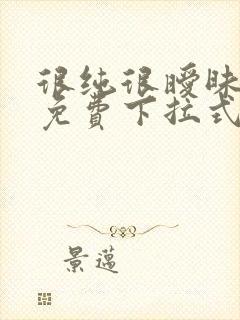 很纯很暧昧
免费下拉式
景迈